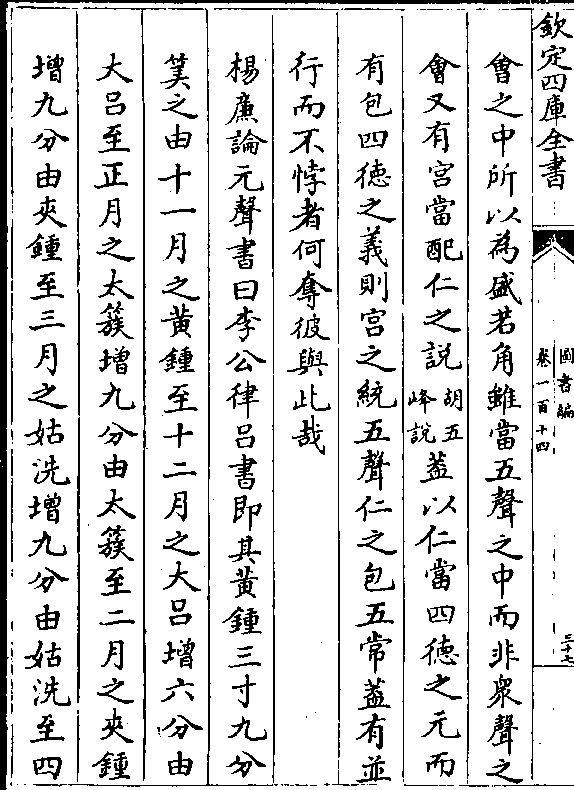 欽定四庫全書
圖書編
卷一百十四
三十七
會之中所以為盛若角雖當五聲之中而非衆聲之
會又有宫當配仁之說胡五峰說葢以仁當四徳之元而
有包四徳之義則宫之統五聲仁之包五常葢有並
行而不悖者何奪彼與此哉
楊廉論元聲書曰李公律吕書即其黄鍾三寸九分
筭之由十一月之黄鍾至十二月之大吕增六分由
大吕至正月之太簇增九分由太簇至二月之夾鍾
增九分由夾鍾至三月之姑洗增九分由姑洗至四